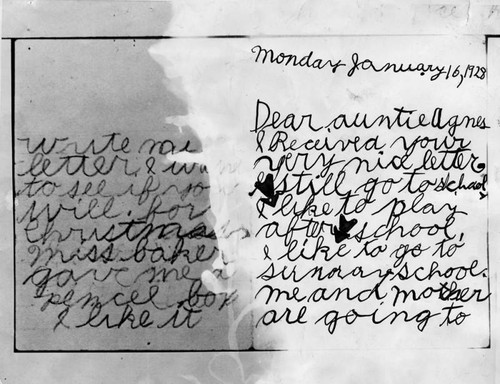 Monday January 16, 1928
Dear auntie Agnes
I Received your
very nice letter.
I still go to school
I like to play
after school,
I like to go to
sunday school.
me and mother
are going to
write
letter. I
to see if you
will. for
christmas
miss baker
gave me a
pencel box
I like it